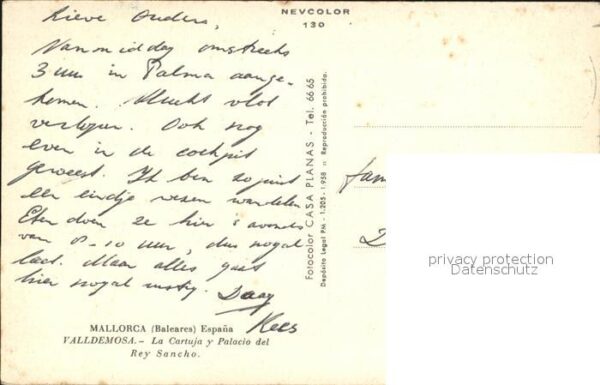 Lieve Ouders,
Vanmiddag omstreeks
3 uur in Palma aange-
komen. Vlucht vlot
verlopen. Ook nog
even in de cockpit
geweest. Ik ben zojuist
een eindje wezen wandelen
Eten doen ze hier 's avonds
van 8-10 uur, dus nogal
laat. Maar alles gaat
hier nogal rustig. Daag
Kees
MALLORCA (Baleares) España
VALLDEMOSA.- La Cartuja y Palacio del
Rey Sancho.
NEVCOLOR
130
Fotocolor CASA PLANAS - Tel. 6665
Depósito Legal PM - 1.205 - 1.958 :: Reproducción prohibida.
fam
privacy protection
Datenschutz